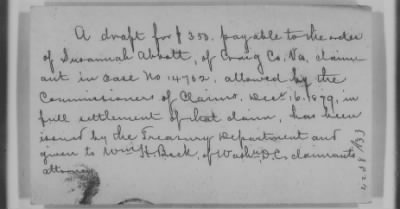 A draft for $350. payable to the order
of Susannah Abbott, of Craig Co. Va. claim-
ant in case No 14702, allowed by the
Commissioners of Claims, Dec. 16. 1879, in
full settlement of that claim, has been
issued by the Treasury Department and
given to Wm H. Beck, of Washn. D.C. claimants
attorney